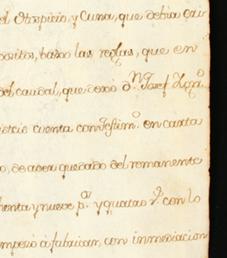 el Ospicio, y Cuna, que debia eri
positos, baxo las reglas, que en
del caudal, que dexo Dn. Josef
cuenta con Testimo. en carta
o, de aver quedado del romanente
henta y nueve ps. y quatro rs. con lo
mpezó á fabricar, con inmediacion